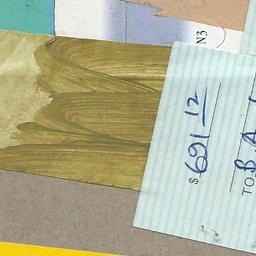 N3
$ 691 12
TO B A